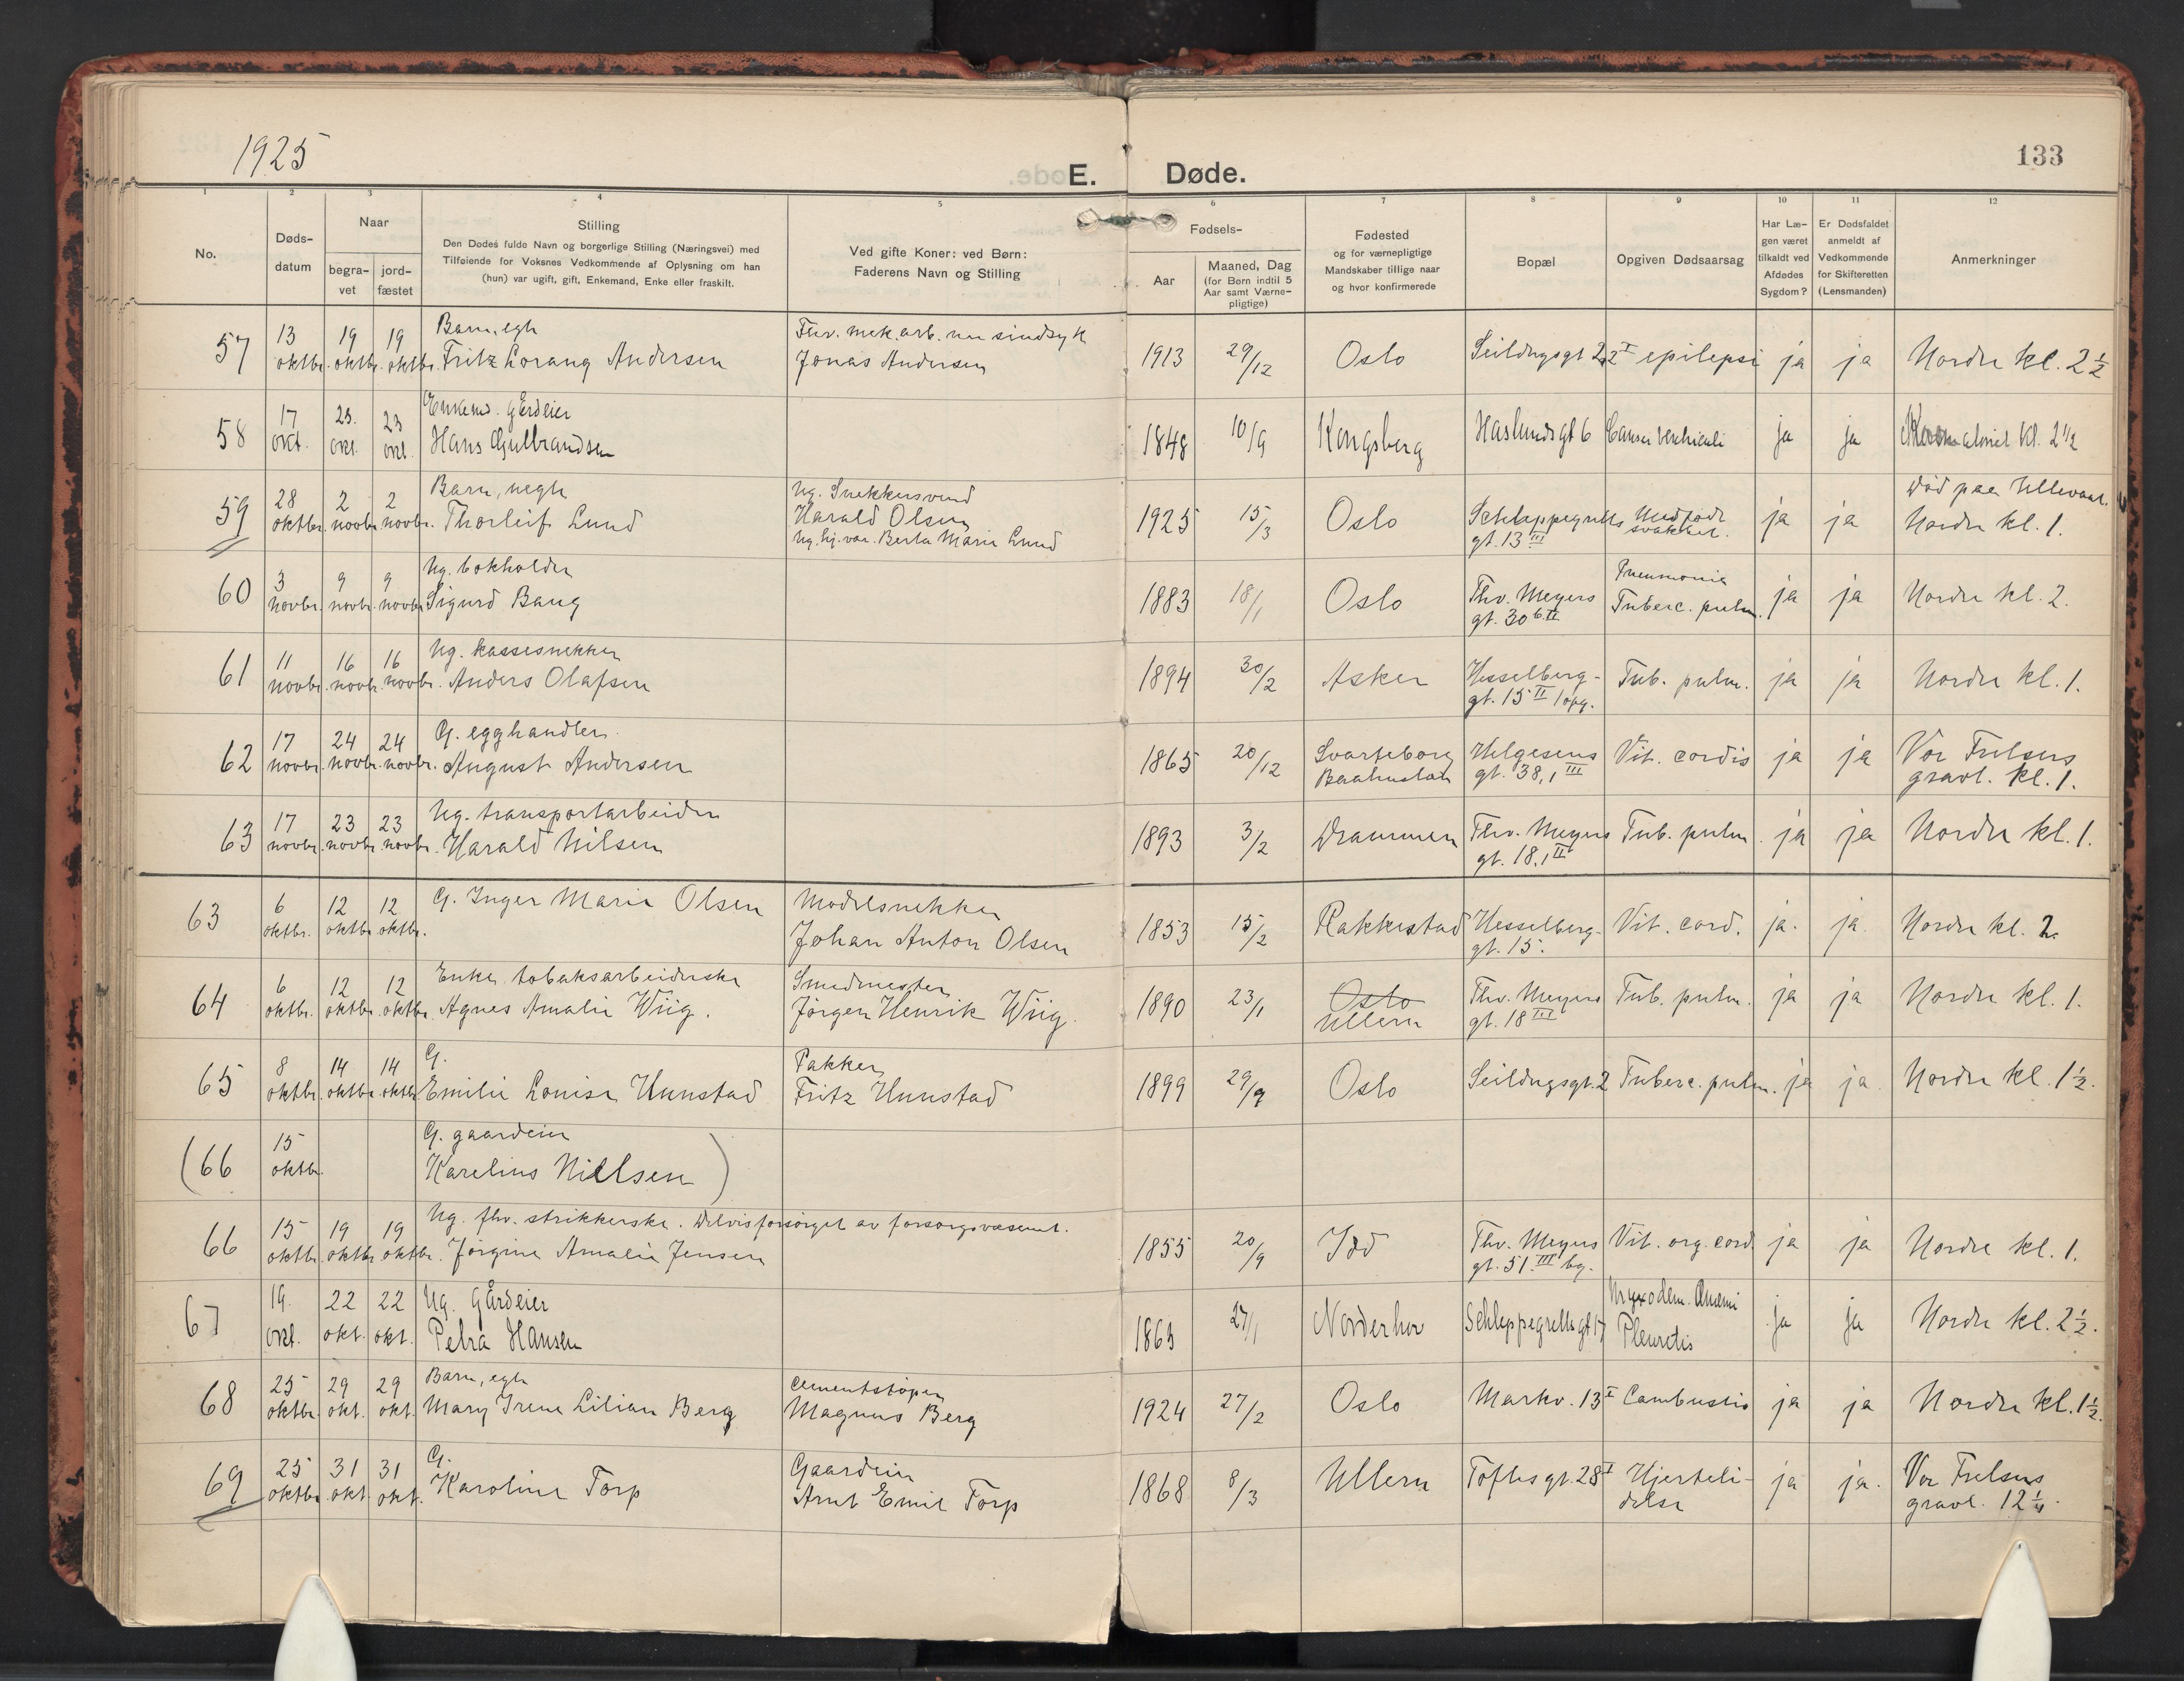 1925
E. Døde.
133
1 2 3 4 5 6 7 8 9 10 11 12
No.
Døds-
datum
Naar
begra-
vet
jord-
fæstet
Stilling
Den Dødes fulde Navn og borgerlige Stilling (Næringsvei) med
Tilføiende for Voksnes Vedkommende af Oplysning om han
(hun) var ugift, gift, Enkemand, Enke eller fraskilt.
Ved gifte Koner: ved Børn:
Faderens Navn og Stilling
Fødsels-
Aar
Maaned, Dag
(for Børn indtil 5
Aar samt Værne-
pligtige)
Fødested
og for værnepligtige
Mandskaber tillige naar
og hvor konfirmerede
Bopæl
Opgiven Dødsaarsag
Har Læ-
gen været
tilkaldt ved
Afdødes
Sygdom?
Er Dødsfaldet
anmeldt af
Vedkommende
for Skifteretten
(Lensmanden)
Anmerkninger
57 13 oktbr. 19 oktbr. 19 oktbr.
Barn, egte
Fritz Lorang Andersen
Fhv. mek. arb. nu sindsyk
Jonas Andersen
1913 29/12 Oslo Seildugsgt 22 I epilepsi ja ja Nordre kl. 2 1/2
58 17 okt. 23. okt. 23 okt.
Enkemd. gårdeier
Hans Gulbrandsen
1848 10/9 Kongsberg Haslunds gt 6 Cancer ventriculi ja ja Krematoriet kl. 2 1/2
59 28 oktbr. 2 novbr. 2 novbr.
Barn, uegte
Thorleif Lund
Ug. Snekkersvend
Harald Olsen
Ug. hj. vær. Berta Marie Lund
1925 15/3 Oslo Schleppegrells
gt. 13 III
Medfødt
svakhet.
ja ja
Død paa Ullevaal.
Nordre kl. 1.
60 3 novbr. 9 novbr. 9 novbr.
Ug. bokholder
Sigurd Bang
1883 18/1 Oslo Thv. Meyers
gt. 30 b. II
Pneumonia
Tuberc. pulm.
ja ja Nordre kl. 2.
61 11 novbr. 16 novbr. 16 novbr.
Ug. kassesnekker
Anders Olafsen
1894 30/2 Asker Hesselberg-
gt. 15 II 1 opg.
Tub. pulm. ja ja Nordre kl. 1.
62 17 novbr. 24 novbr. 24 novbr.
G. egghandler
August Andersen
1865 20/12 Svarteborg
Baahuslän
Helgesens
gt. 38, 1 III
Vit. cordis ja ja Vor Frelsers
gravl. kl. 1.
63 17 novbr. 23 novbr. 23 novbr.
Ug. transportarbeider
Harald Nilsen
1893 3/2 Drammen Thv. Meyers
gt. 18, 1 II
Tub. pulm. ja ja Nordre kl. 1.
63 6 oktbr. 12 oktbr. 12 oktbr.
G. Inger Marie Olsen
Modelsnekker
Johan Anton Olsen
1853 15/2 Rakkestad Hesselberg-
gt. 15.
Vit. cord. ja. ja Nordre kl. 2.
64 6 oktbr. 12 oktbr. 12 oktbr.
Enke tobaksarbeiderske
Agnes Amalie Wiig.
Smedmester
Jørgen Henrik Wiig.
1890 23/1 Oslo
Ullern
Thv. Meyers
gt. 18 III
Tub. pulm. ja ja Nordre kl. 1.
65 8 oktbr. 14 oktbr. 14 oktbr.
G.
Emilie Louise Hunstad
Pakker
Fritz Hunstad
1899 29/9 Oslo Seildugsgt. 2 Tuberc. pulm. ja ja Nordre kl. 1 1/2.
(66 15 oktbr.
G. gaardeier
Karelius Nielsen)
66 15 oktbr. 19 oktbr. 19 oktbr.
Ug. fhv. strikkerske. Delvis forsørget av forsorgsvæsenet.
Jørgine Amalie Jensen
1855 20/9 Idd Thv. Meyers
gt. 51. III bg.
Vit. org. cord. ja ja Nordre kl. 1.
67 19. okt. 22 okt. 22 okt.
Ug. Gårdeier
Petra Hansen
1865 27/1 Norderhov Schleppegrells gt 17
Myxødem. Anæmi
Pleuritis
ja ja Nordre kl. 2 1/2.
68 25 oktbr. 29 okt. 29 okt.
Barn, egte
Mary Irene Lilian Berg
Cementstøper
Magnus Berg
1924 27/2 Oslo Markv. 13 I Combustio ja ja Nordre kl. 1 1/2.
69 25 oktbr. 31 okt. 31 okt.
G.
Karoline Torp
Gaardeier
Arnt Emil Torp
1868 8/3 Ullern Toftes gt. 28 I Hjerteli-
delse
ja ja. Vor Frelsers
gravl. 12 1/4.